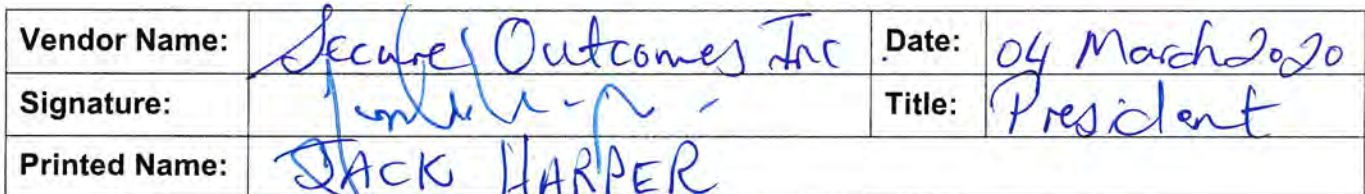 Vendor Name: Secure Outcomes Inc Date: 04 March 2020
Signature: Title: President
Printed Name: JACK HARPER